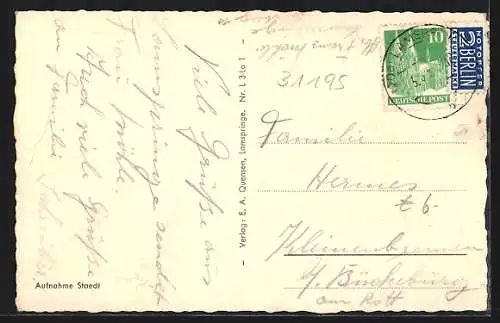 Viele Grüße aus
Lamspringe sendet
Frau Mühle.
Auch viele Grüße
an Familie
Aufnahme Staedt
– Verlag: E. A. Quensen, Lamspringe. Nr. L 3 Io 1 –
31195
10
DEUTSCHE POST
NOTOPFER
2 BERLIN
STEUERMARKE
Familie
Hermes
t 6-
Kleinenbremen
b/ Bückeburg
am Rott